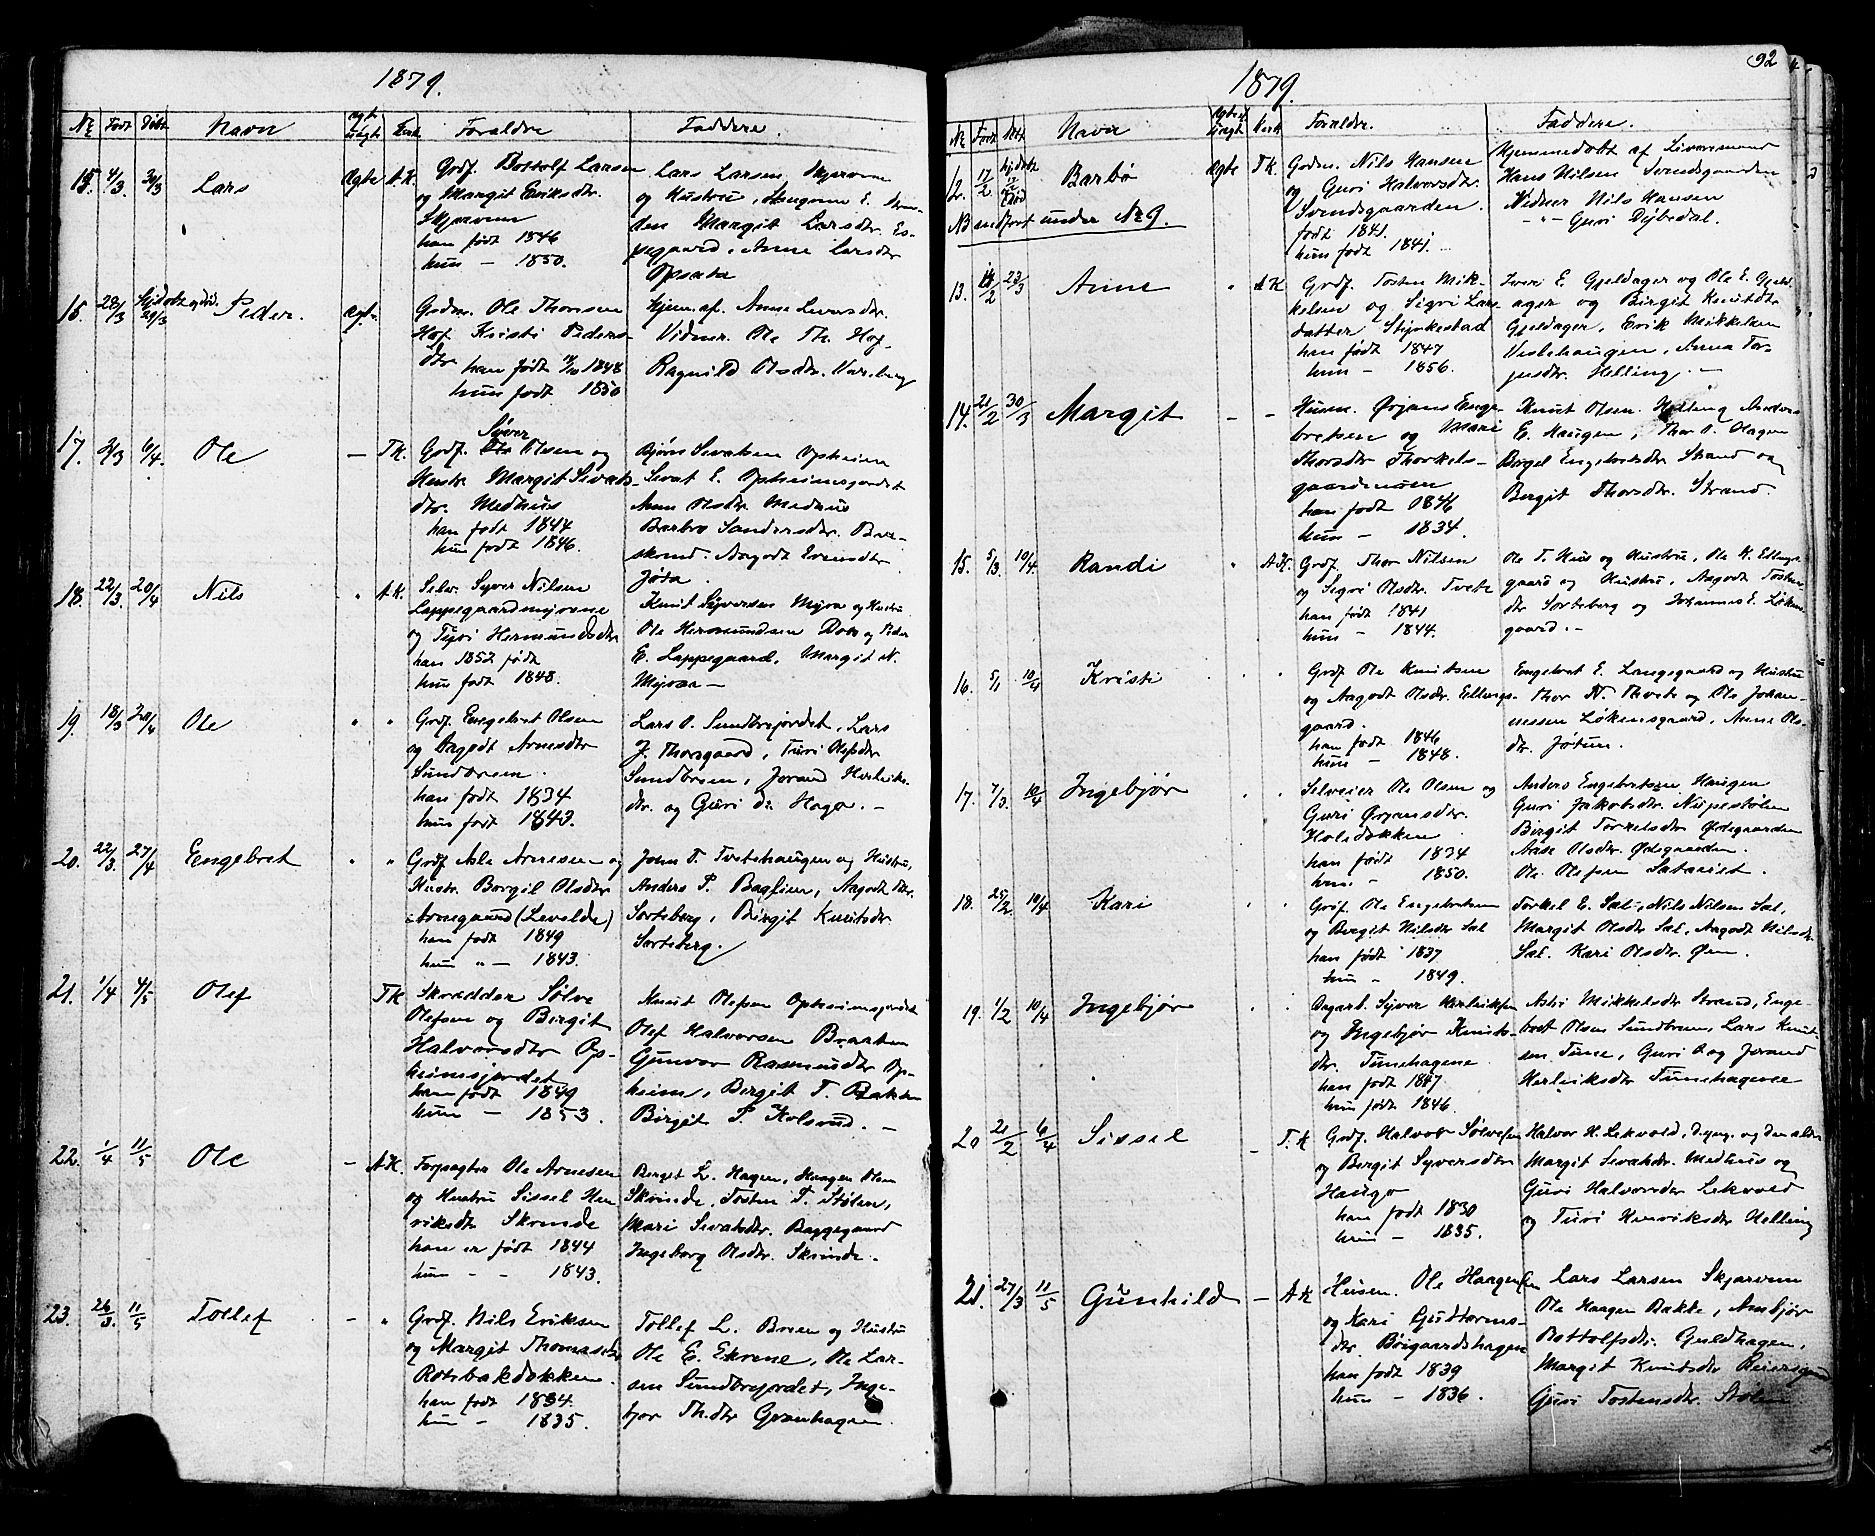 1879.
No Født Døbt Navn ægte uægte Kirk Forældre Faddere.
15. 4/3 30/3 Lars Ægte A.K. Gdf. Bottolf Larsen
og Margit Eriksdtr.
Skjervum
han født 1846
hun — 1850.
Lars Larsen Skjervum
og Hustru,
Margit Larsdtr. Es-
pegaard, Anne Larsdtr
Opsata
16. 28/3 hjdøbt og død 29/3 Peder. Ægte Gdmd. Ole Thorsen
Hof Kristi Peders-
dtr
han født 1848
hun født 1850
Hjem. af. Anne Larsdtr.
Vidner. Ole Th. Hof,
Ragnild Olsdtr.
17. 2/3 6/4. Ole — T.K. Syver
Gdf. Olsen og
Hustr Margit Sivats-
dtr. Medhus
han født 1844
hun født 1846.
Bjørn Sevatsen Opheim
Sevat E. Opheimsjordet
Anne Olsdtr Medhus
Barbro Sandersdtr. Bra-
Aagodt Evensdtr
Jøta.
18. 22/3. 20/4 Nils A.K. Selv. Syver Nilsen
Lappegaardmyrene
og Turi Hermundsdtr
han 1852 født
hun født 1848.
Knut Syversen Myra og Hustru
Ole Hermundsen og Peder
E. Lappegaard, Margit N.
Myraa —
19. 18/3 20/4 Ole Gdf. Engebret Olsen
og Aagodt Arnesdtr
Sundbreen.
han født 1834
hun født 1843.
Lars O. Sundbrejordet, Lars
J. Thorsgaard, Turi Olsdtr
Sundbreen, Jorand Herleiks-
dtr. og Guri do Haga. —
20. 22/3. 27/4 Engebret Gdf Asle Arnesen og
Hustr. Borgil Olsdtr
Arnegaard (Levelde)
han født 1849
hun " — 1843.
John T. Tvetehaugen og Hustru,
Anders P. Baglien, Aagodt
Sorteberg, Birgit Knutsdtr
Sorteberg.
21. 1/4 4/5 Olef T.K Skrædder Sølve
Olefsen og Birgit
Halvorsdtr Op-
heimsjordet
han født 1849
hun — 1853.
Knut Olefsen Opheimsjordet
Olef Halvorsen Braaten
Gunvor Rasmusdtr Op-
heim, Birgit T. Bakken
Birgit P. Kolsrud. —
22. 1/4 11/5 Ole — A.K. Forpagter Ole Arnesen
og Hustru Sissel Hen-
riksdtr Skrinde
han er født 1844
hun — — 1843.
Birget L. Hagen, Haagen Olsen
Skrinde, Tosten T. Stølen,
Mari Sevatsdtr. Baggegaard
Ingeborg Olsdtr. Skrinde.
23. 26/3 11/5 Tollef — " Gdf. Nils Eriksen
og Margit Thomasdtr
Rotebakdokken
han født 1834.
hun — 1835.
Tollef L. Breen og Hustru
Ole E. Ekrene, Ole Lar-
sen Sundbrejordet, Inge-
bjør Th.dtr Grønhagen.
92
1879.
No Født Døbt Navn ægte uægte Kirk Forældre. Faddere.
12. 17/2 hjdøbt 17/2 død Barbo Ægte T.K. Gdmd. Nils Hansen
og Guri Halvorsdtr.
Svendsgaarden
født 1841.
hun født 1841.
NB indført under No 9.
Hjemmedøbt af Livaremund
Hans Nilsen Svendsgaarden
Vidner Nils Hansen
— " — Guri Dybedal.
13. 14/2 23/3 Anne " A.K Gdf. Tosten Mik-
kelsen og Sigri Lars
datter Styrkestad
han født 1847
hun — 1856.
Iver E. Gjeldager og Ole E. Gjeld-
ager og Birgit Knutdtr
Gjeldager, Erik Mikkelsen
Veslehaugen, Anna Tor-
Helling. —
14. 21/2 30/3 Margit — — Husm. Ørjans Enge-
bretsen og Mari
Thorsdtr Thorkels-
gaardmoen
han født 1846
hun — 1834.
Knut Olsen Helling Anders
E. Haugen, Thor O. Hagen
Birgit Engebretsdtr Strand og
Birgit Thorsdtr. Strand.
15. 5/3. 10/4. Randi " A.K. Gdf. Thor Nilsen
og Sigri Olsdtr. Tvete
han født 1841
hun — 1844.
Ole T. Hus og Hustru, Ole K. Ellings-
gaard og Hustru, Aagodt Tosten-
dtr Sorteberg og Johannes E. Løken-
gaard. —
16. 5/1 10/4 Kristi Gdf Ole Knutsen
og Aagodt Olsdtr. Ellings-
gaard.
han født 1846
hun — 1848.
Engebret E. Langegaard og Hustru
Thor N. Tvete og Ole Johan-
nessen Løkensgaard, Anne Ols-
dtr. Jøtun.
17. 7/3. 10/4 Ingebjør Selveier Ole Olsen og
Guri Ørjansdtr.
Holsdokken
han født 1834
hun — 1850.
Anders Engebretsen Haugen
Guri Jakobsdtr. Nupestølen
Birgit Torkelsdtr Ødegaarden
Aase Olsdtr. Ødegaarden.
Ole Olefsen Sataslet.
18. 25/2. 10/4 Kari Gdf. Ole Engebretsen
og Birgit Nilsdtr Sal
han født 1837
hun — 1849.
Torkel E. Sal, Nils Nilsen Sal,
Margit Olsdtr Sal, Aagodt Nilsdtr
Sal. Kari Olsdtr. Øen.
19. 1/2 10/4 Ingebjør Syver Herleiksen
og Ingebjør Knuts-
dtr. Tunehagene
han født 1847
hun født 1846.
Asli Mikkelsdtr Strand, Enge-
bret Olsen Sundbreen, Lars Knut-
sen Tune, Guri O og Jorand
Herleiksdtr Tunehagene
20 21/2 6/4 Sissel — T.K Gdf. Halvor Sølvesen
og Birgit Syversdtr
Haugo
han født 1830
hun — 1835.
Halvor H. Lekvold,
Margit Sevatsdtr. Medhus og
Guri Halvorsdtr Lekvold
og Turi Henriksdtr Helling
21. 27/3 11/5 Gunhild — A.K Husm. Ole Haagensen
og Kari Guttorms-
dtr. Børgaardshagen
han født 1839
hun — 1836.
Lars Larsen Skjervum
Ole Haagen Bakke, Ambjør
Bottolfsdtr. Guldhagen,
Margit Knutsdtr
Guri Tostensdtr. Stølen